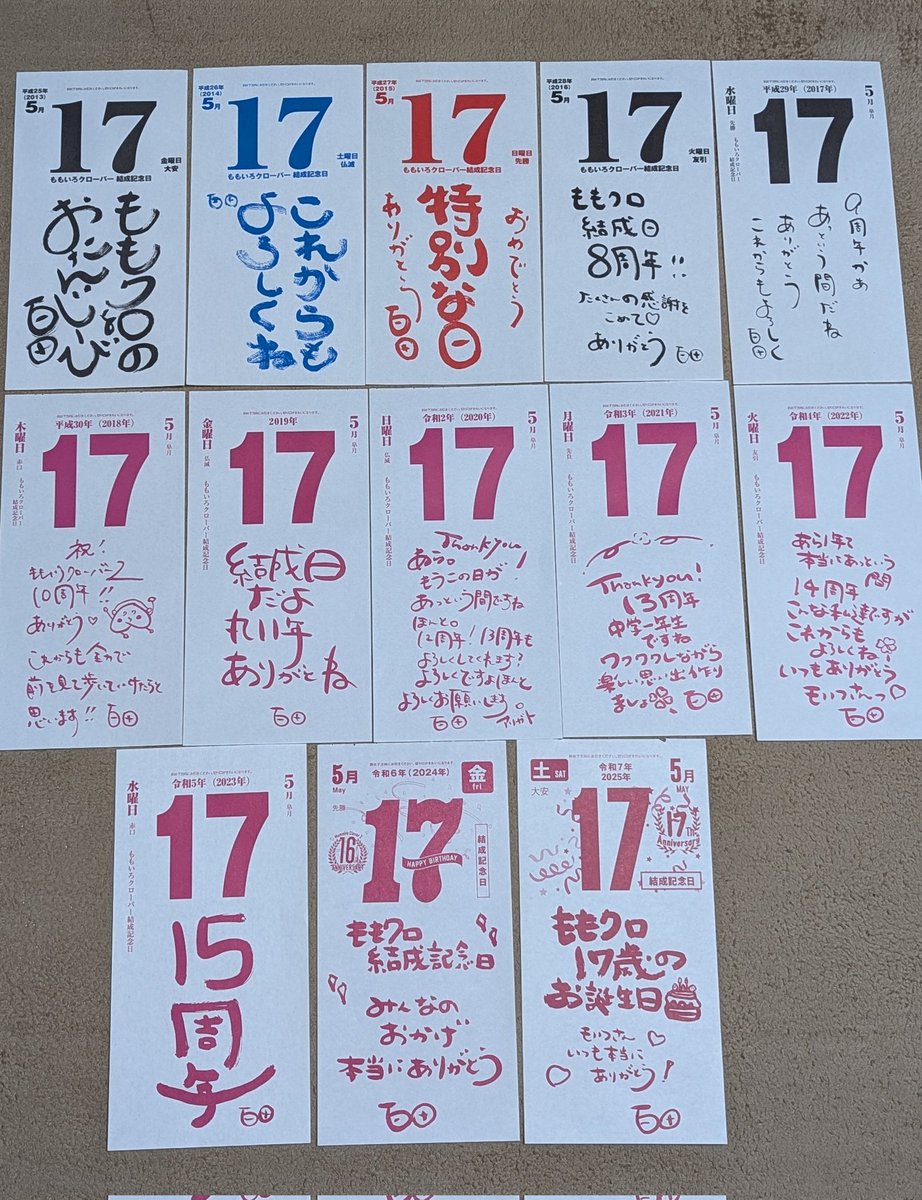 平成25年
(2013)
5月
17
金曜日
大安
ももいろクローバー 結成記念日
ももクロの
おたんじょーび
百田
平成26年
(2014)
5月
17
土曜日
仏滅
ももいろクローバー 結成記念日
これからも
よろしくね
百田
平成27年
(2015)
5月
17
日曜日
先勝
ももいろクローバー 結成記念日
おめでとう
特別な日
ありがとう
百田
平成28年
(2016)
5月
17
火曜日
友引
ももいろクローバー 結成記念日
ももクロ
結成日
8周年!!
たくさんの感謝を
こめて♡
ありがとう 百田
平成29年(2017年)
5月 皐月
17
水曜日 先勝
ももいろクローバー
結成記念日
9周年かぁ
あっという間だね
ありがとう
これからもよろしく
百田
平成30年(2018年)
5月 皐月
17
木曜日 赤口
ももいろクローバー
結成記念日
祝!
ももいろクローバーZ
10周年!!
ありがとう♡
これからも全力で
前を見て歩いていけたらと
思います!! 百田
2019年
5月 皐月
17
金曜日 仏滅
ももいろクローバー結成記念日
結成日
だよ
丸11年
ありがとね
百田
令和2年(2020年)
5月 皐月
17
日曜日 仏滅
ももいろクローバー結成記念日
Thankyou!
あらっ。
もうこの日が
あっという間ですね
ほんと。
12周年!13周年も
よろしくしてくれます?
よろしくですよほんと
よろしくお願いします。
百田
令和3年(2021年)
5月 皐月
17
月曜日 先負
ももいろクローバー結成記念日
Thankyou!
13周年
中学一年生
ですね
ワクワクしながら
楽しい思い出作り
ましょ 百田
令和4年(2022年)
5月 皐月
17
火曜日 友引
ももいろクローバー結成記念日
あら1年て
本当にあっという
間
14周年
こんな私達ですが
これからも
よろしくね!
いつもありがとう
もいつさんっ♡
百田
令和5年(2023年)
5月 皐月
17
水曜日 赤口
ももいろクローバー結成記念日
15
周
年
百田
5月
May
令和6年(2024年)
金
fri
先勝
17
16
ANNIVERSARY
HAPPY BIRTHDAY
結成記念日
ももクロ
結成記念日
みんなの
おかげ
本当にありがとう
百田
土 SAT
令和7年
2025年
5月
MAY
大安
17
17Th
Anniversary
結成記念日
ももクロ
17歳の
お誕生日
もいつさん♡
いつも本当に
♡ ありがとう!
百田